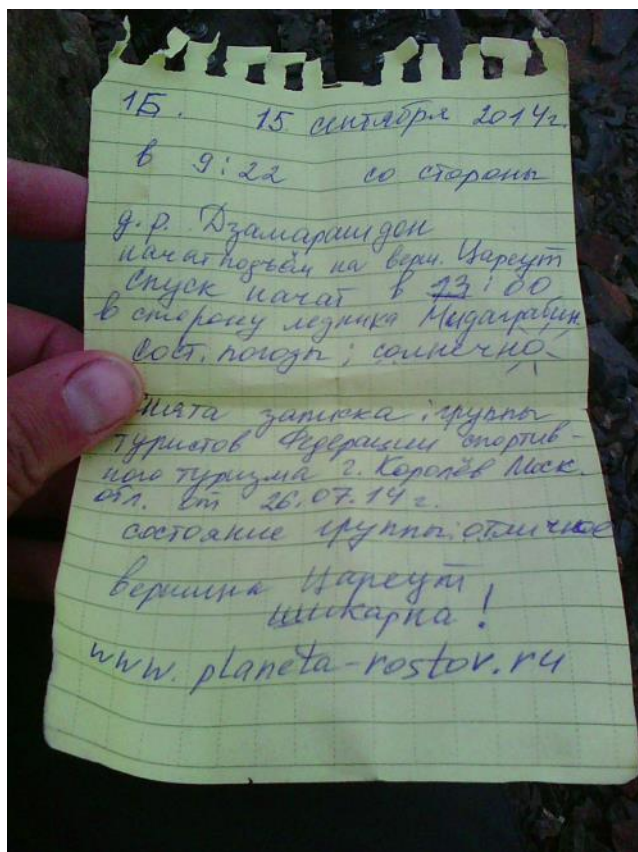 1Б. 15 сентября 2014г.
в 9:22 со стороны
д.р. Дзамарашдон
начат подъём на верш. Цареут
Спуск начат в 13:00
в сторону ледника Мидаграбин.
Сост. погоды: солнечно
снята записка: группы
туристов Федерации спортив-
ного туризма г. Королёв Моск.
обл. от 26.07.14г.
состояние группы: отличное
вершина Цареут
шикарна!
www.planeta-rostov.ru